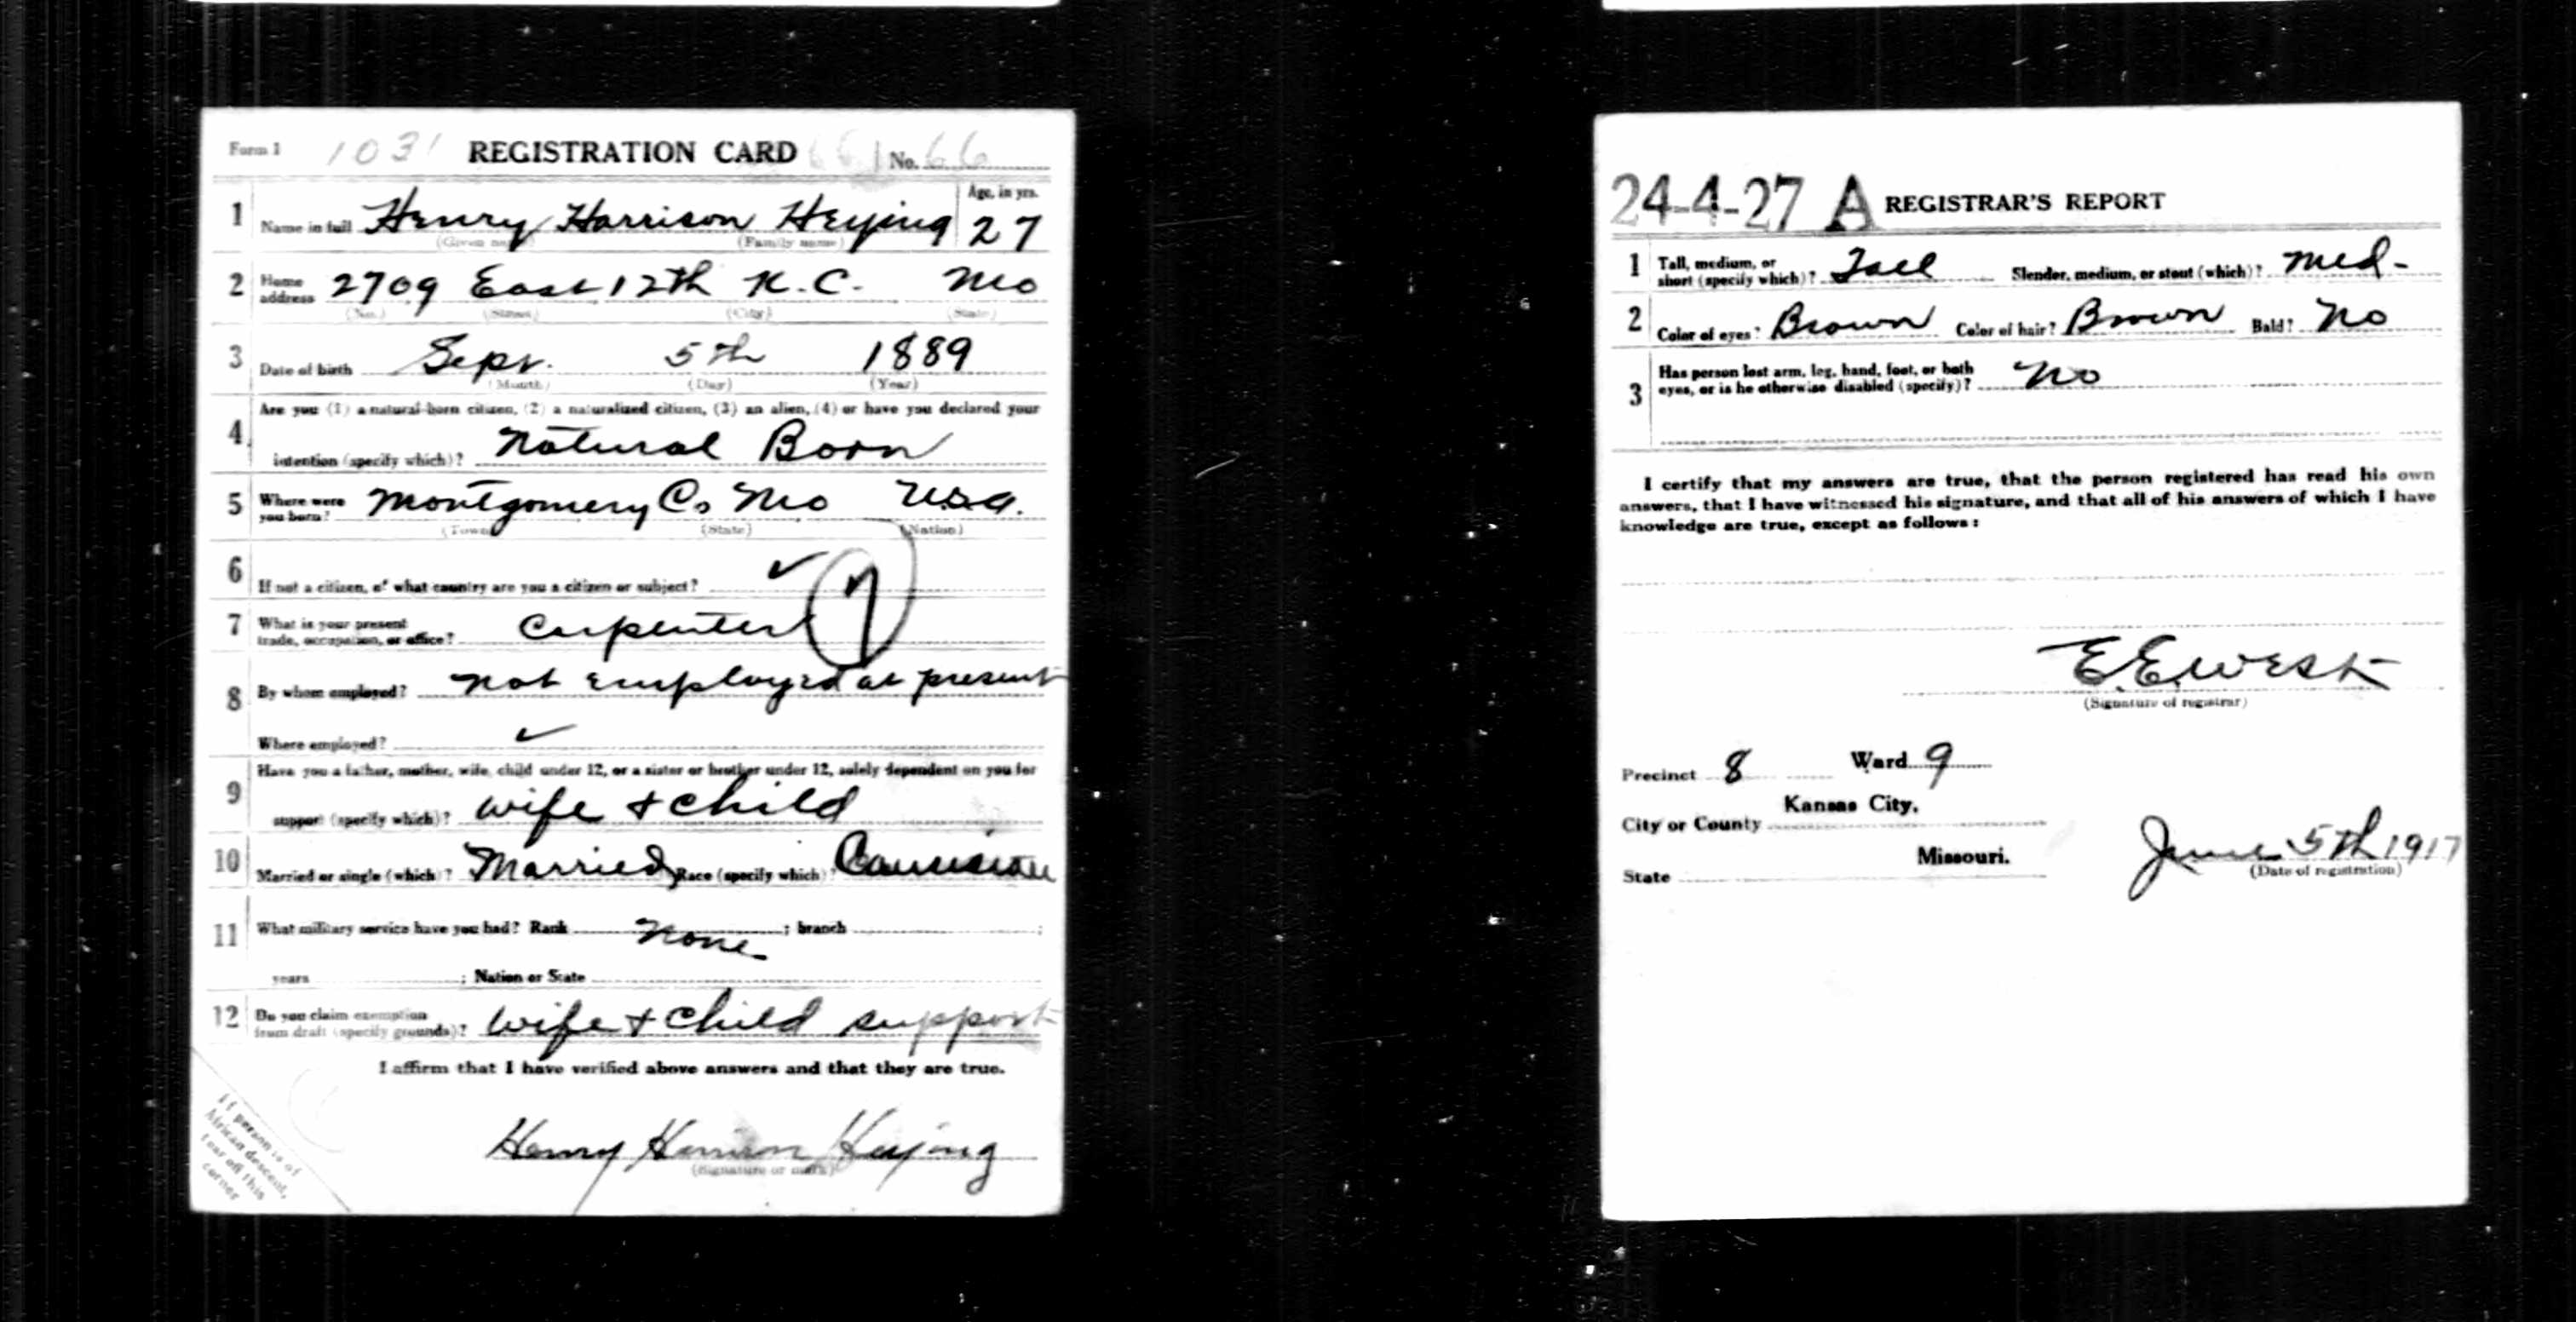 Form 1 1031 REGISTRATION CARD 661 No. 66
1 Name in full Henry Harrison Heying Age, in yrs. 27
(Given name) (Family name)
2 Home address 2709 East 12th K.C. Mo
(No.) (Street) (City) (State)
3 Date of birth Sept. 5th 1889
(Month) (Day) (Year)
4 Are you (1) a natural-born citizen, (2) a naturalized citizen, (3) an alien, (4) or have you declared your
intention (specify which)? Natural Born
5 Where were you born? Montgomery Co Mo U.S.A.
(Town) (State) (Nation)
6 If not a citizen, of what country are you a citizen or subject? ✓
7 What is your present trade, occupation, or office? Carpenter
8 By whom employed? not employed at present
Where employed? ✓
9 Have you a father, mother, wife, child under 12, or a sister or brother under 12, solely dependent on you for
support (specify which)? wife + child
10 Married or single (which)? Married Race (specify which)? Caucasian
11 What military service have you had? Rank None ; branch ;
years ; Nation or State
12 Do you claim exemption from draft (specify grounds)? wife + child support
I affirm that I have verified above answers and that they are true.
Henry Harrison Heying
(Signature or mark)
If person is of
African descent,
tear off this
corner
24-4-27 A REGISTRAR'S REPORT
1 Tall, medium, or short (specify which)? Tall Slender, medium, or stout (which)? Med-
2 Color of eyes? Brown Color of hair? Brown Bald? No
3 Has person lost arm, leg, hand, foot, or both
eyes, or is he otherwise disabled (specify)? No
I certify that my answers are true, that the person registered has read his own
answers, that I have witnessed his signature, and that all of his answers of which I have
knowledge are true, except as follows:
E.E. West
(Signature of registrar)
Precinct 8 Ward 9
City or County Kansas City,
State Missouri.
June 5th 1917
(Date of registration)